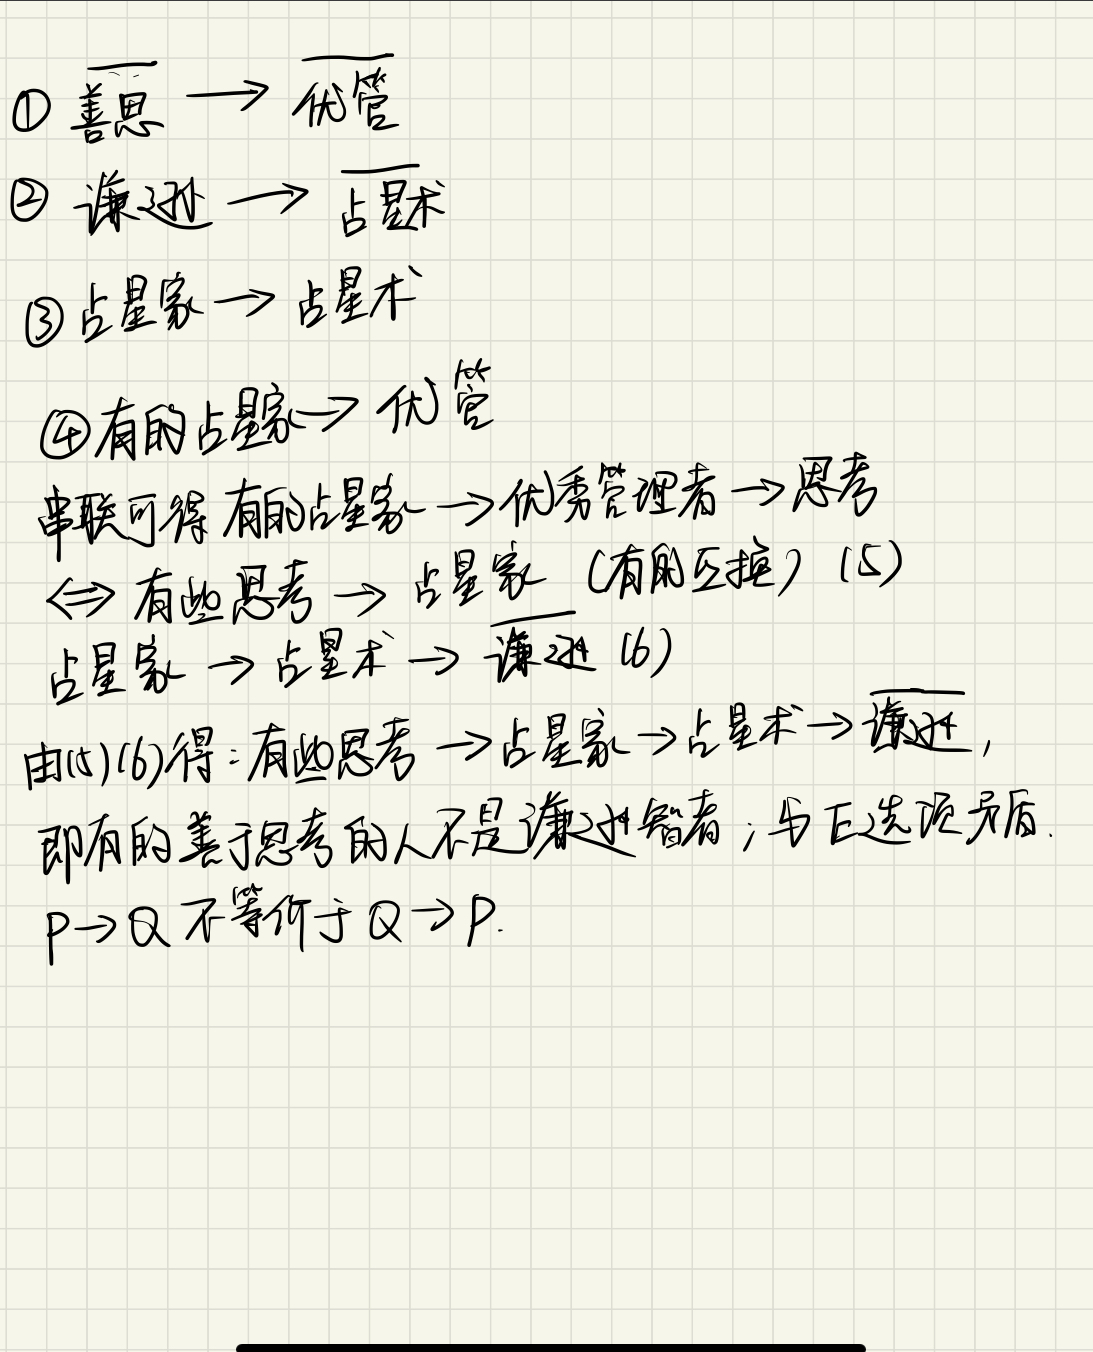 ① 善思 → 优管
② 谦逊 → 占星术
③ 占星家 → 占星术
④ 有的占星家 → 优管
串联可得 有的占星家 → 优秀管理者 → 思考
⇔ 有些思考 → 占星家 (有的互换) (5)
占星家 → 占星术 → 谦逊 (6)
由(5)(6)得:有些思考 → 占星家 → 占星术 → 谦逊,
即有的善于思考的人不是谦逊智者;与E选项矛盾.
P→Q 不等价于 Q→P.